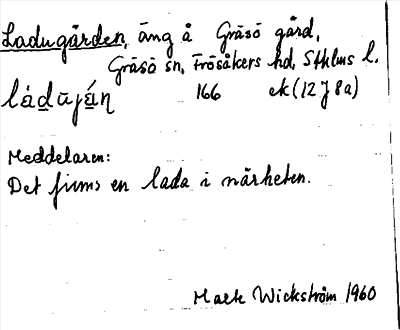 Ladugården, äng å Gräsö gård,
Gräsö sn, Frösåkers hd, Sthlms l.
166 ek (12 J 8a)
Meddelaren:
Det finns en lada i närheten.
Wickström 1960